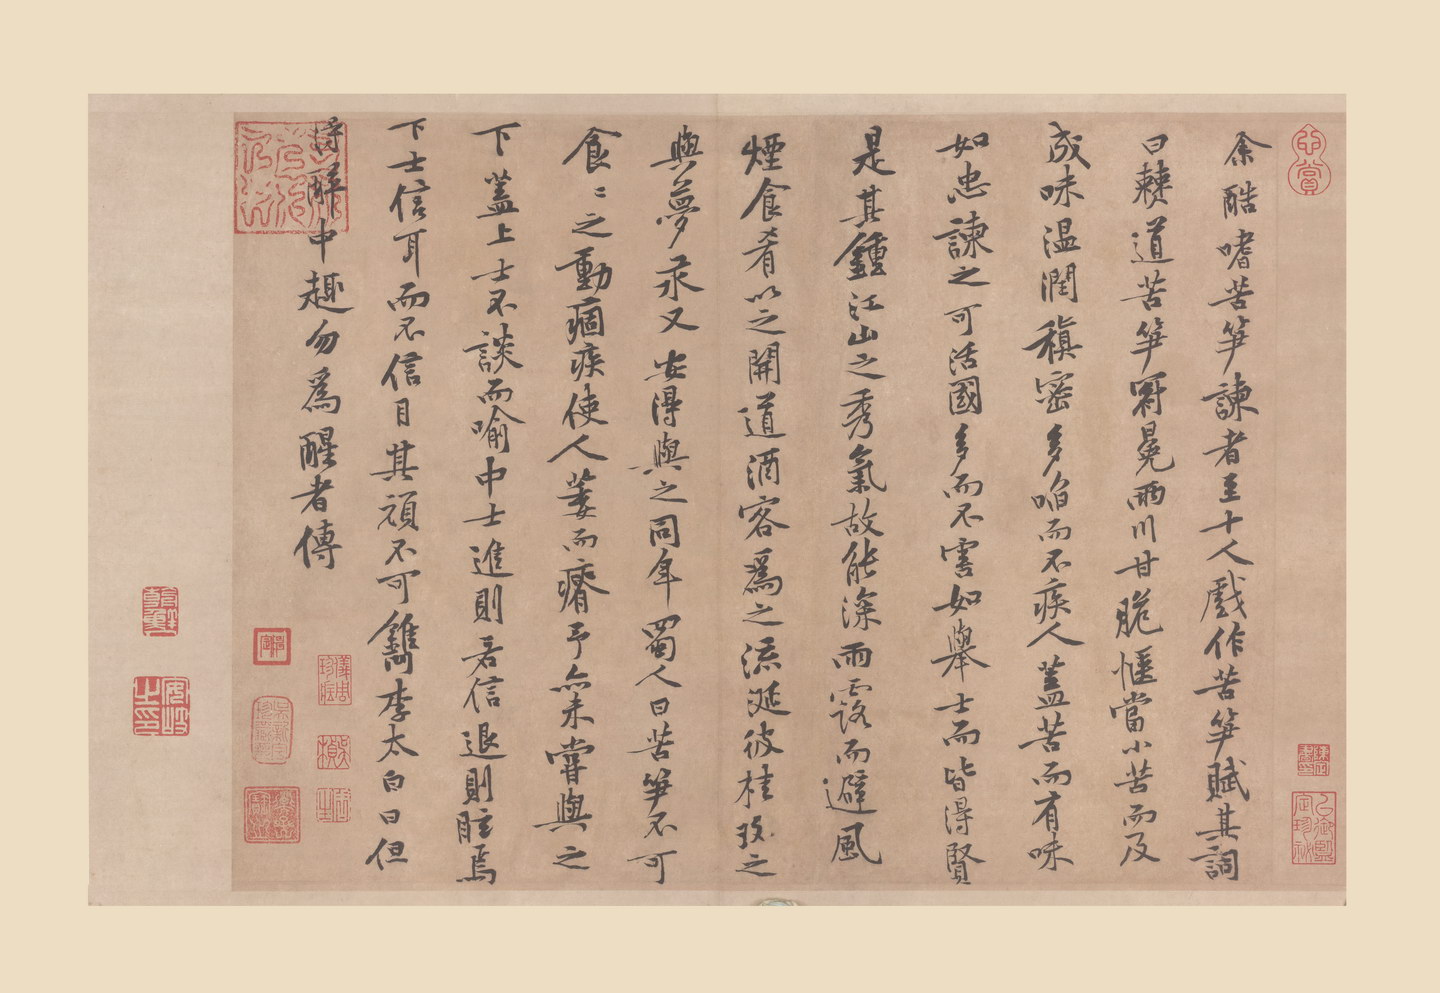 余酷嗜苦笋諫者至十人戲作苦笋賦其詞
曰僰道苦笋冠冕兩川甘脆愜當小苦而及
成味温潤稹密多啗而不疾人蓋苦而有味
如忠諫之可活國多而不害如舉士而皆得賢
是其鍾江山之秀氣故能深雨露而避風
煙食肴以之開道酒客爲之流涎彼桂玫之
與夢汞又安得與之同年蜀人曰苦笋不可
食〻之動痼疾使人萎而瘠予亦未嘗與之
下蓋上士不談而喻中士進則若信退則眩焉
下士信耳而不信目其頑不可鐫李太白曰但
得醉中趣勿爲醒者傳
心賞
儀周珍藏
安岐之印